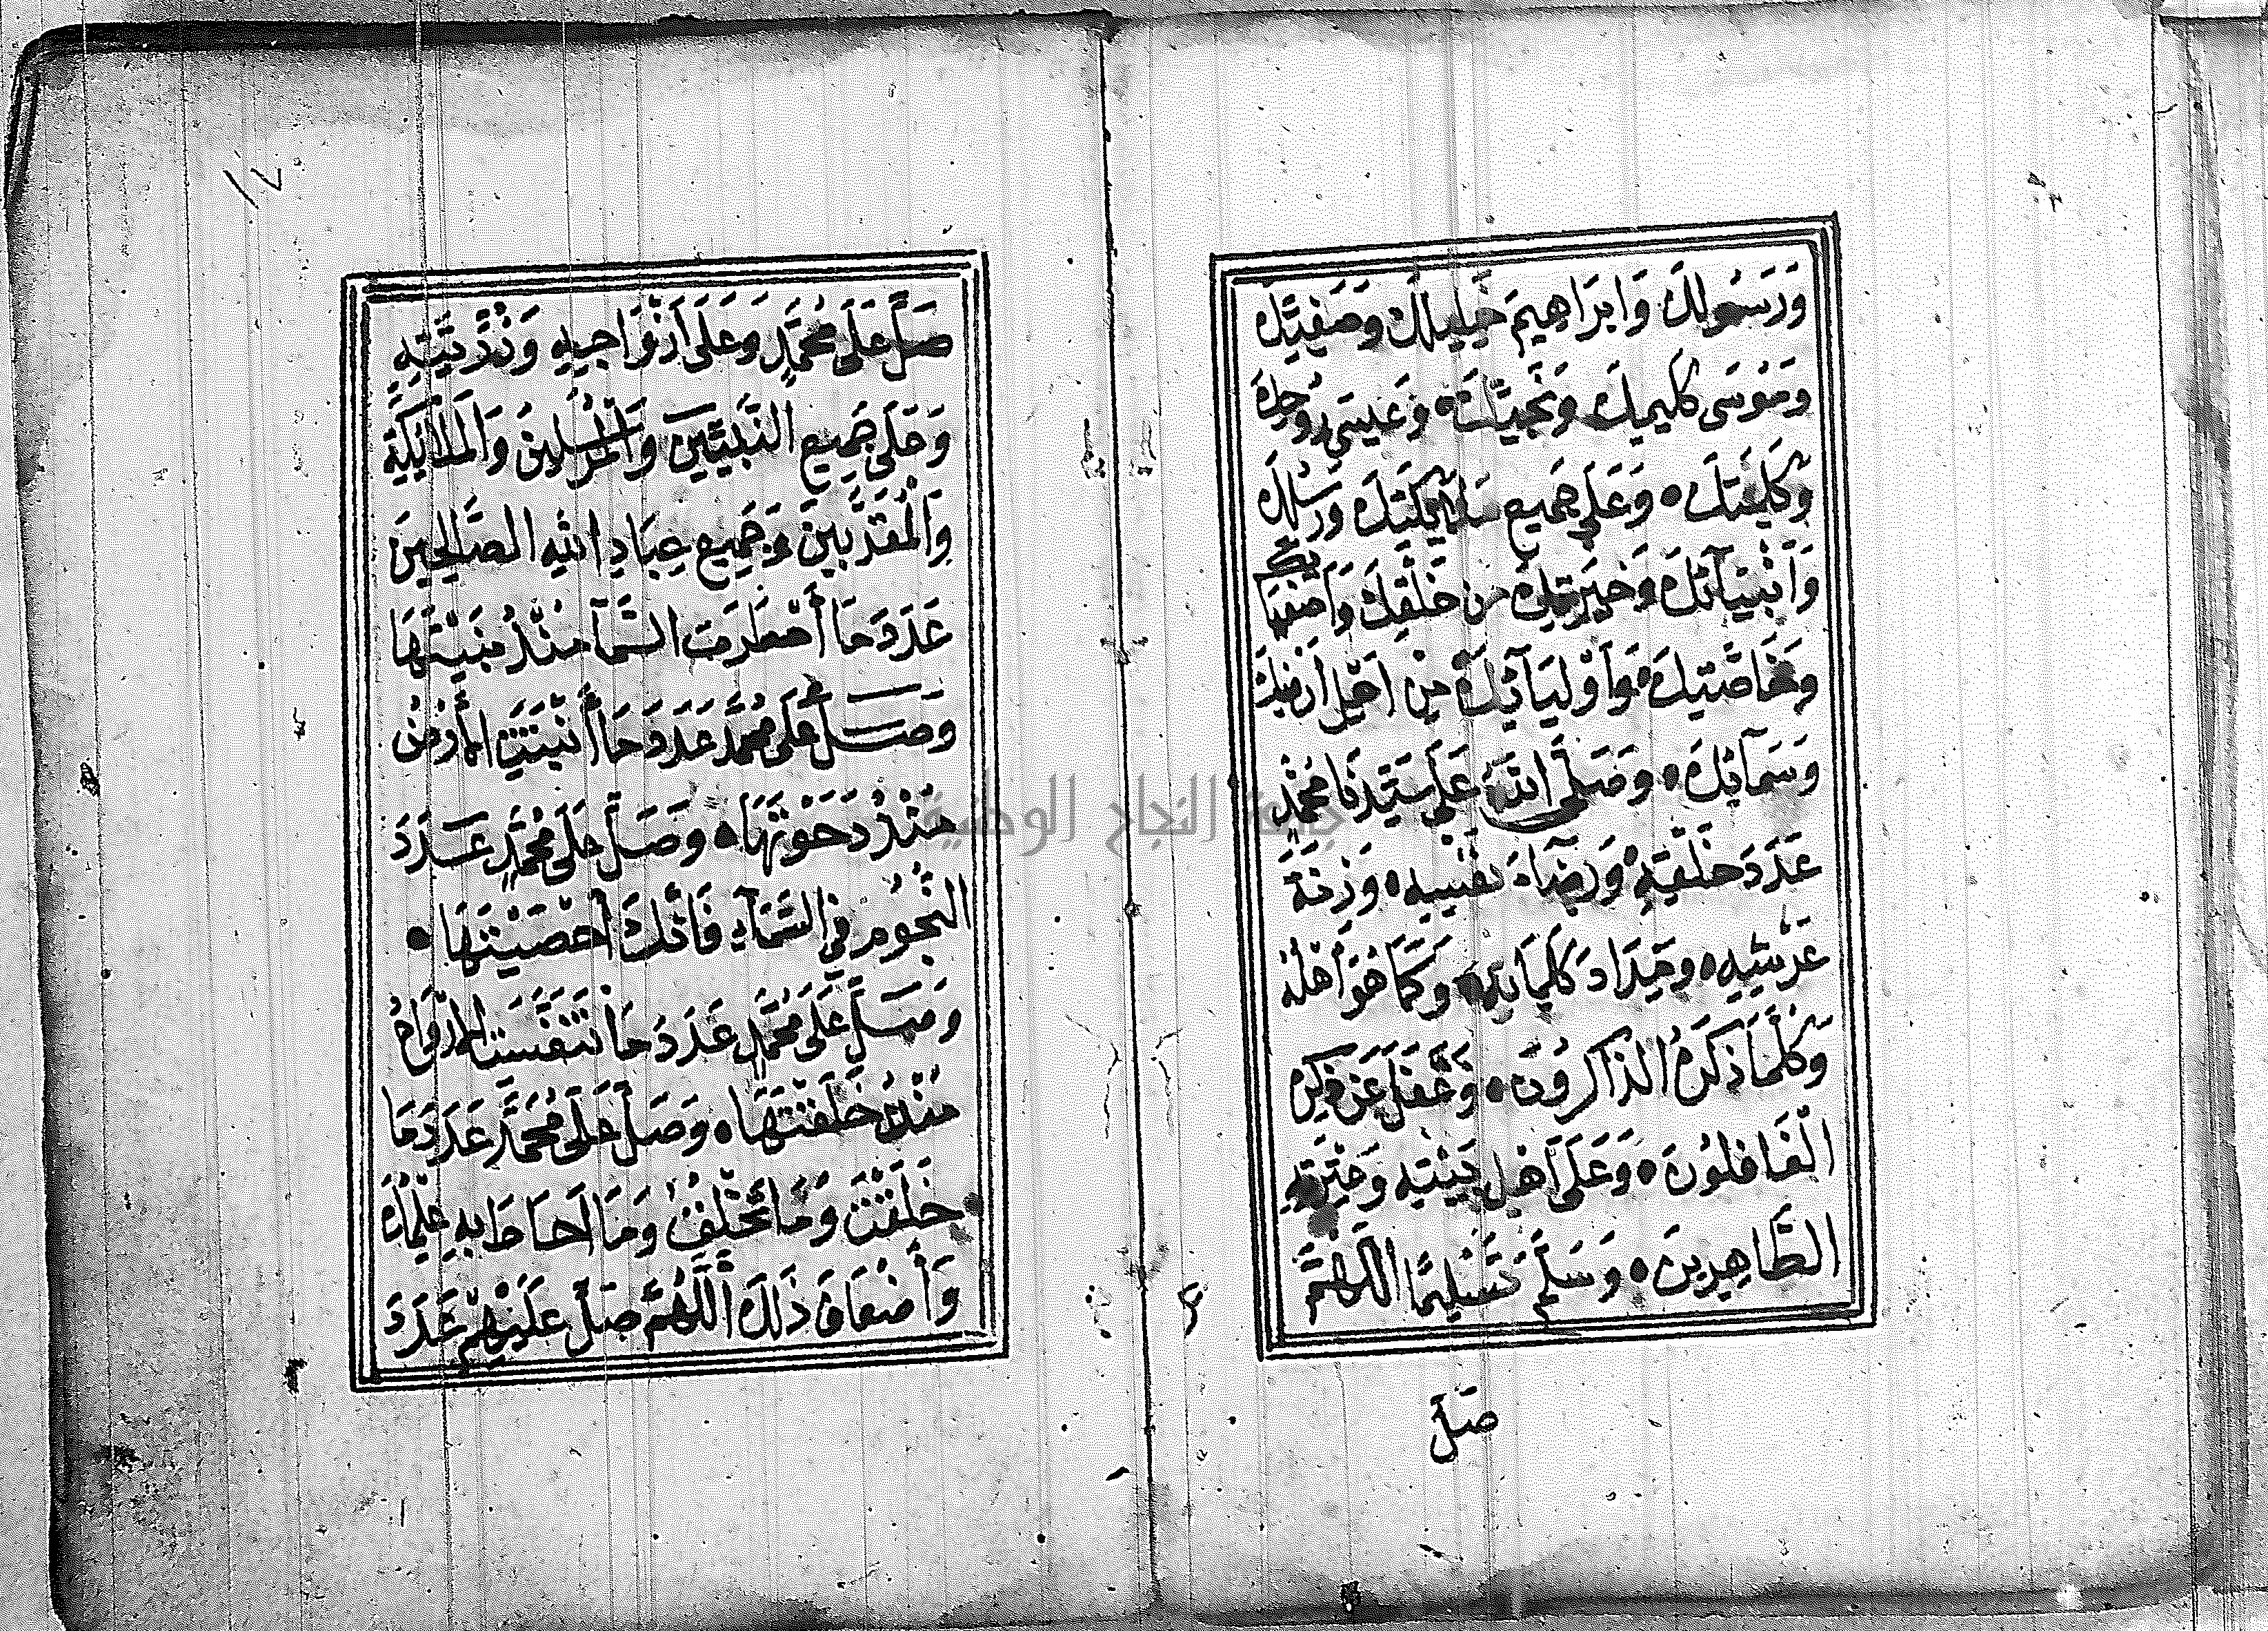 وَرَسُولِكَ وَابْرَاهِيمَ خَلِيلِكَ وَصَفِيِّكَ
وَمُوسَى كَلِيمِكَ وَنَجِيِّكَ وَعِيسَى رُوحِكَ
وَكَلِمَتِكَ وَعَلَى جَمِيعِ مَلَائِكَتِكَ وَرُسُلِكَ
وَأَنْبِيَآئِكَ وَخِيرَتِكَ مِنْ خَلْقِكَ وَأَصْفِيَائِكَ
وَخَاصَّتِكَ وَأَوْلِيَآئِكَ مِنْ أَهْلِ أَرْضِكَ
وَسَمَآئِكَ وَصَلَّى اللهُ عَلَى سَيِّدِنَا مُحَمَّدٍ
عَدَدَ خَلْقِهِ وَرِضَآءَ نَفْسِهِ وَزِنَةَ
عَرْشِهِ وَمِدَادَ كَلِمَاتِهِ وَكَمَا هُوَ أَهْلُهُ
وَكُلَّمَا ذَكَرَهُ الذَّاكِرُونَ وَغَفَلَ عَنْ ذِكْرِهِ
الْغَافِلُونَ وَعَلَى أَهْلِ بَيْتِهِ وَعِتْرَتِهِ
الطَّاهِرِينَ وَسَلَّمَ تَسْلِيمًا اللَّهُمَّ
صَلِّ
١٧
صَلِّ عَلَى مُحَمَّدٍ وَعَلَى أَزْوَاجِهِ وَذُرِّيَّتِهِ
وَعَلَى جَمِيعِ النَّبِيِّينَ وَالْمُرْسَلِينَ وَالْمَلَائِكَةِ
وَالْمُقَرَّبِينَ وَجَمِيعِ عِبَادِ اللهِ الصَّالِحِينَ
عَدَدَ مَا أَمْطَرَتِ السَّمَآ مُنْذُ بَنَيْتَهَا
وَصَلِّ عَلَى مُحَمَّدٍ عَدَدَ مَا أَنْبَتَتِ الْأَرْضُ
مُنْذُ دَحَوْتَهَا وَصَلِّ عَلَى مُحَمَّدٍ عَدَدَ
النُّجُومِ فِي السَّمَآءِ فَاِنَّكَ أَحْصَيْتَهَا
وَصَلِّ عَلَى مُحَمَّدٍ عَدَدَ مَا تَنَفَّسَتِ الْأَرْوَاحُ
مُنْذُ خَلَقْتَهَا وَصَلِّ عَلَى مُحَمَّدٍ عَدَدَ مَا
خَلَقْتَ وَمَا تَخْلُقُ وَمَا أَحَاطَ بِهِ عِلْمُكَ
وَأَضْعَافَ ذَلِكَ اَللَّهُمَّ صَلِّ عَلَيْهِمْ عَدَدَ
جامعة النجاح الوطنية